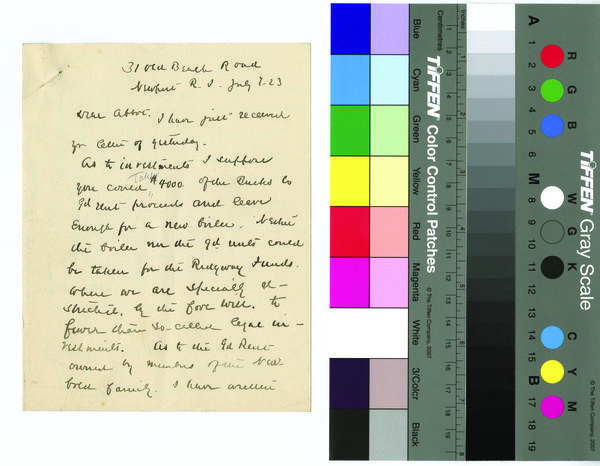 31 Old Beach Road
Newport R. I. July 7. 23
Dear Abbot. I have just received
yr letter of yesterday.
As to investments I suppose
you could Take $4000 of the Bucks Co
Gd Rent proceeds and leave
enough for a new boiler. Neither
the boiler nor the gd rents could
be taken for the Ridgway Funds.
where we are specially
by the
fewer than so-called legal in-
vestments. As to the Gd Rent
owned by members of the New-
bold family. I have written
Blue
Cyan
Green
Yellow
Red
Magenta
White
3/Color
Black
Centimetres
Inches
TIFFEN Color Control Patches
© The Tiffen Company, 2007
TIFFEN Gray Scale
© The Tiffen Company, 2007
R G B
W G K
C Y M
A 1 2 3 4 5 6 M 8 9 10 11 12 13 14 15 B 17 18 19